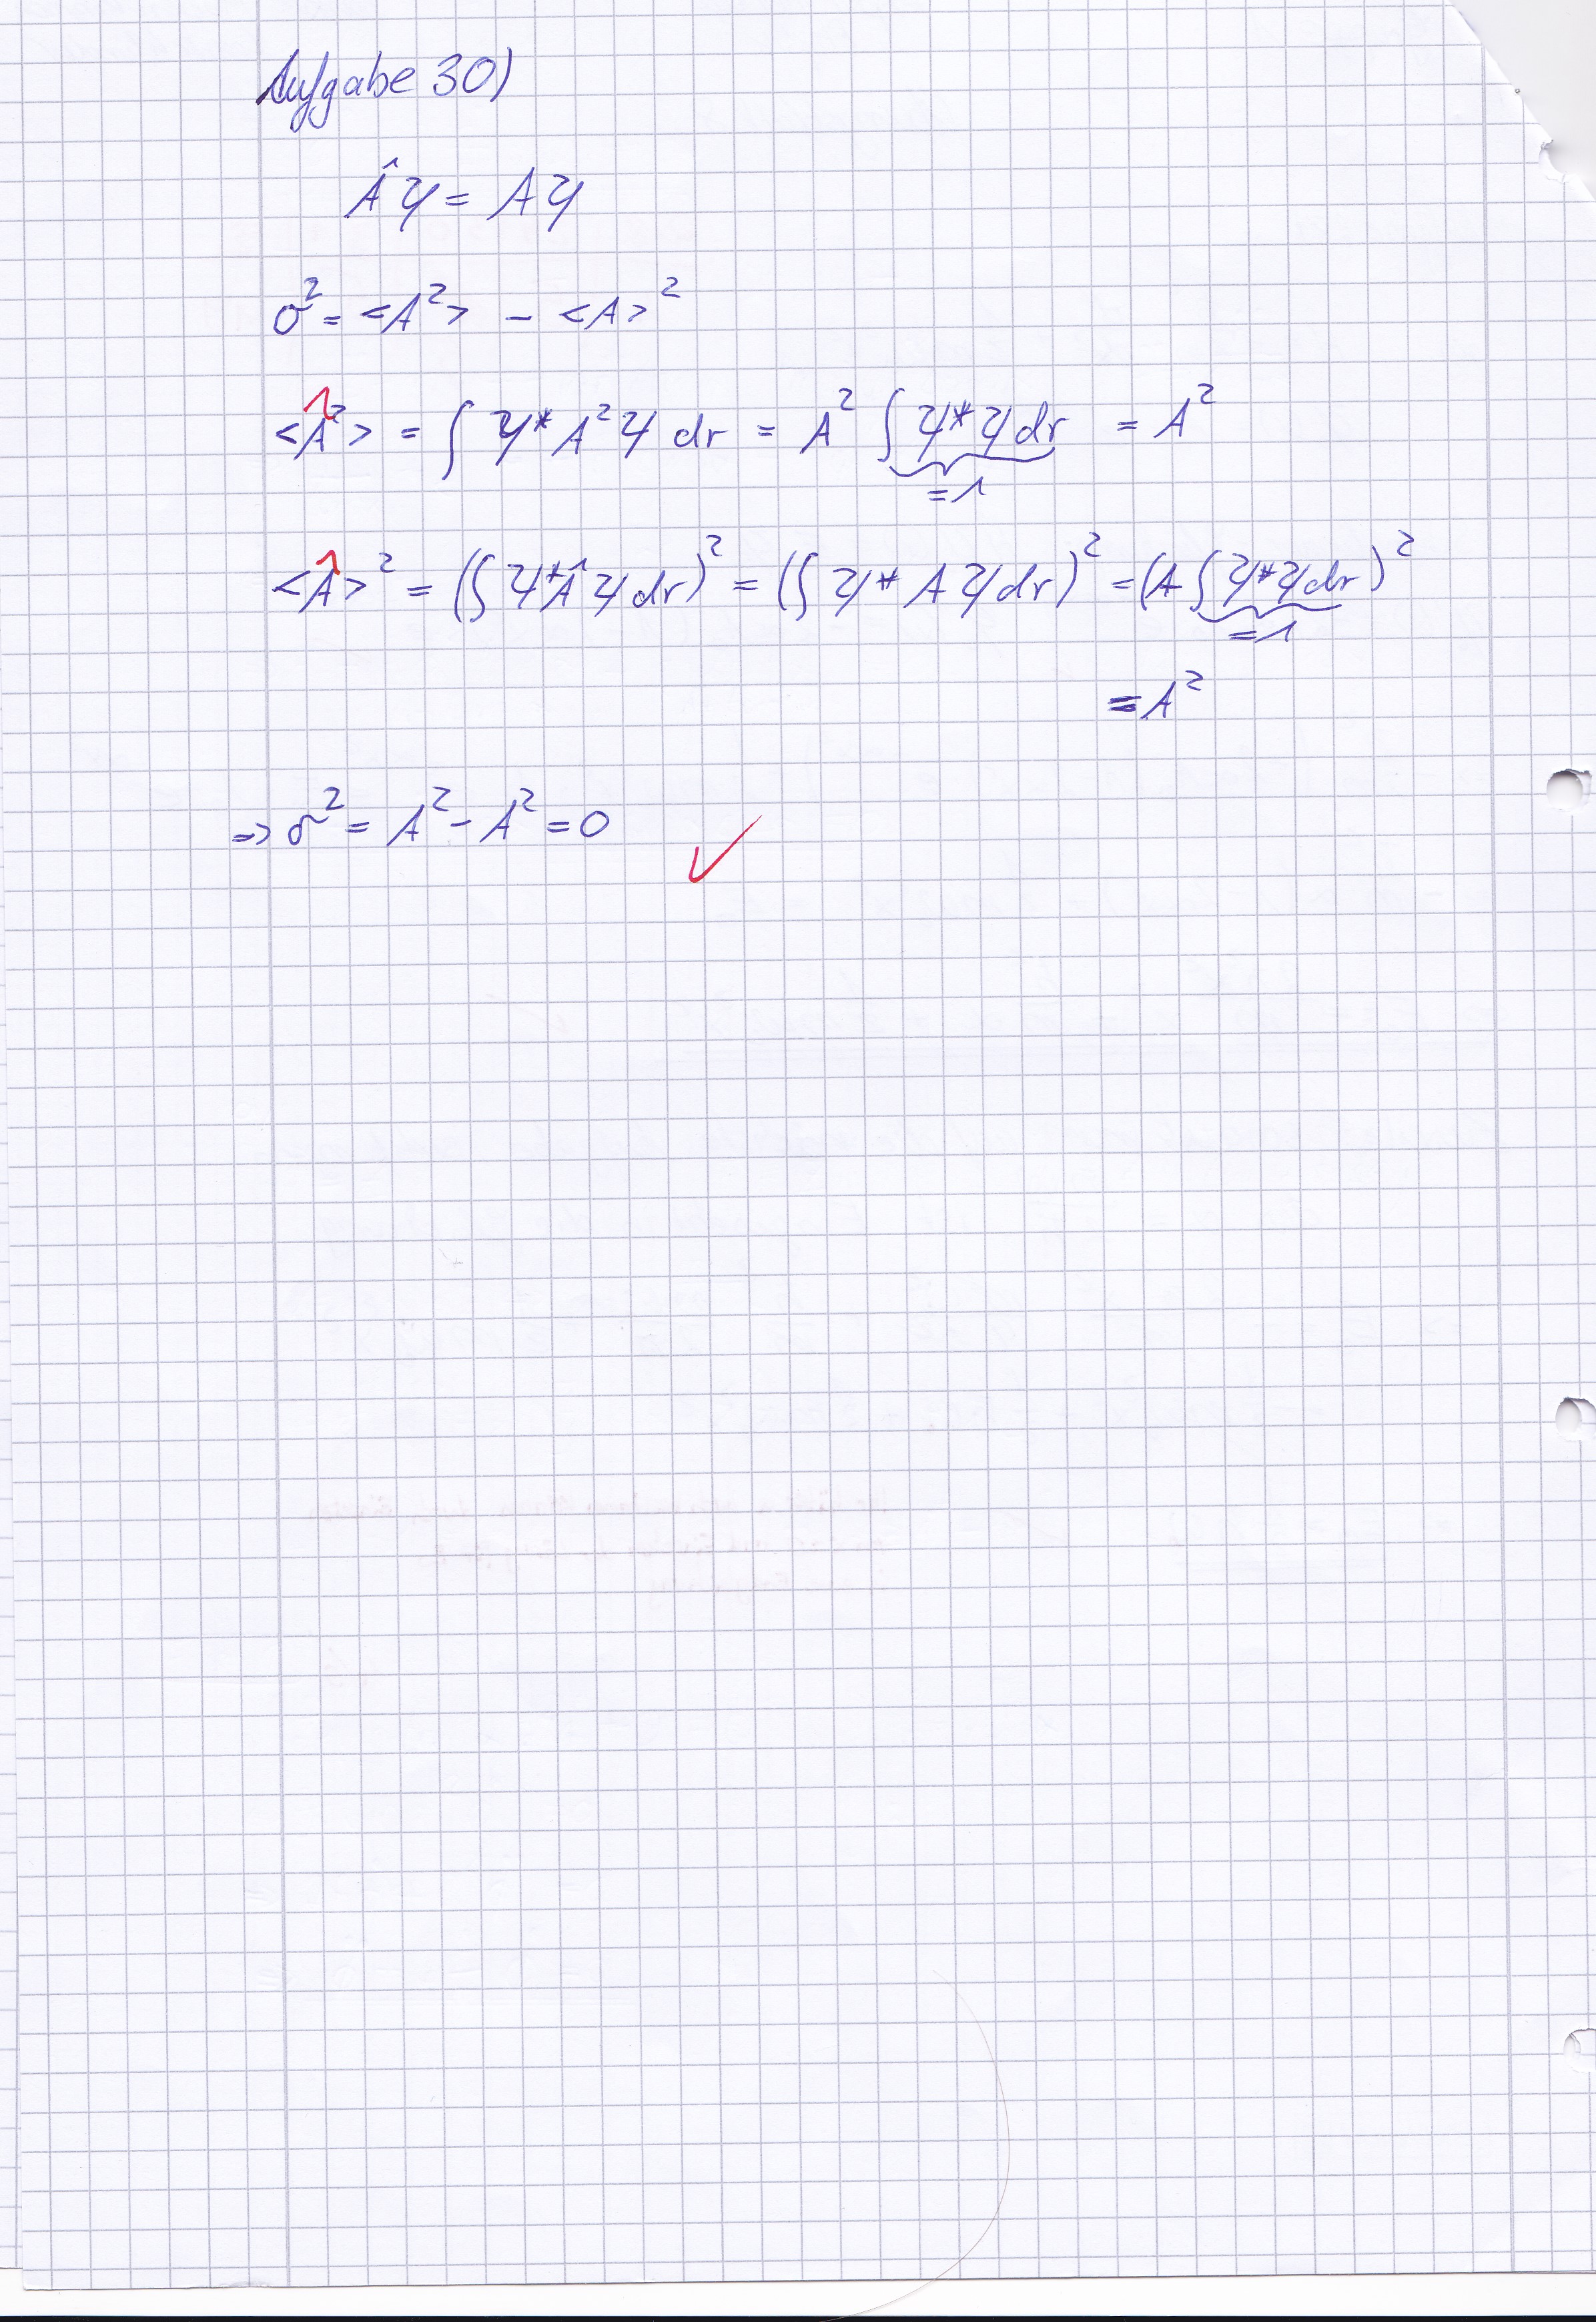 Aufgabe 30)
Âψ = Aψ
σ² = <A²> - <A>²
<Â²> = ∫ ψ* A² ψ dr = A² ∫ ψ* ψ dr = A²
= 1
<Â>² = (∫ ψ* Â ψ dr)² = (∫ ψ* A ψ dr)² = (A ∫ ψ* ψ dr)²
= 1
= A²
=> σ² = A² - A² = 0 ✓